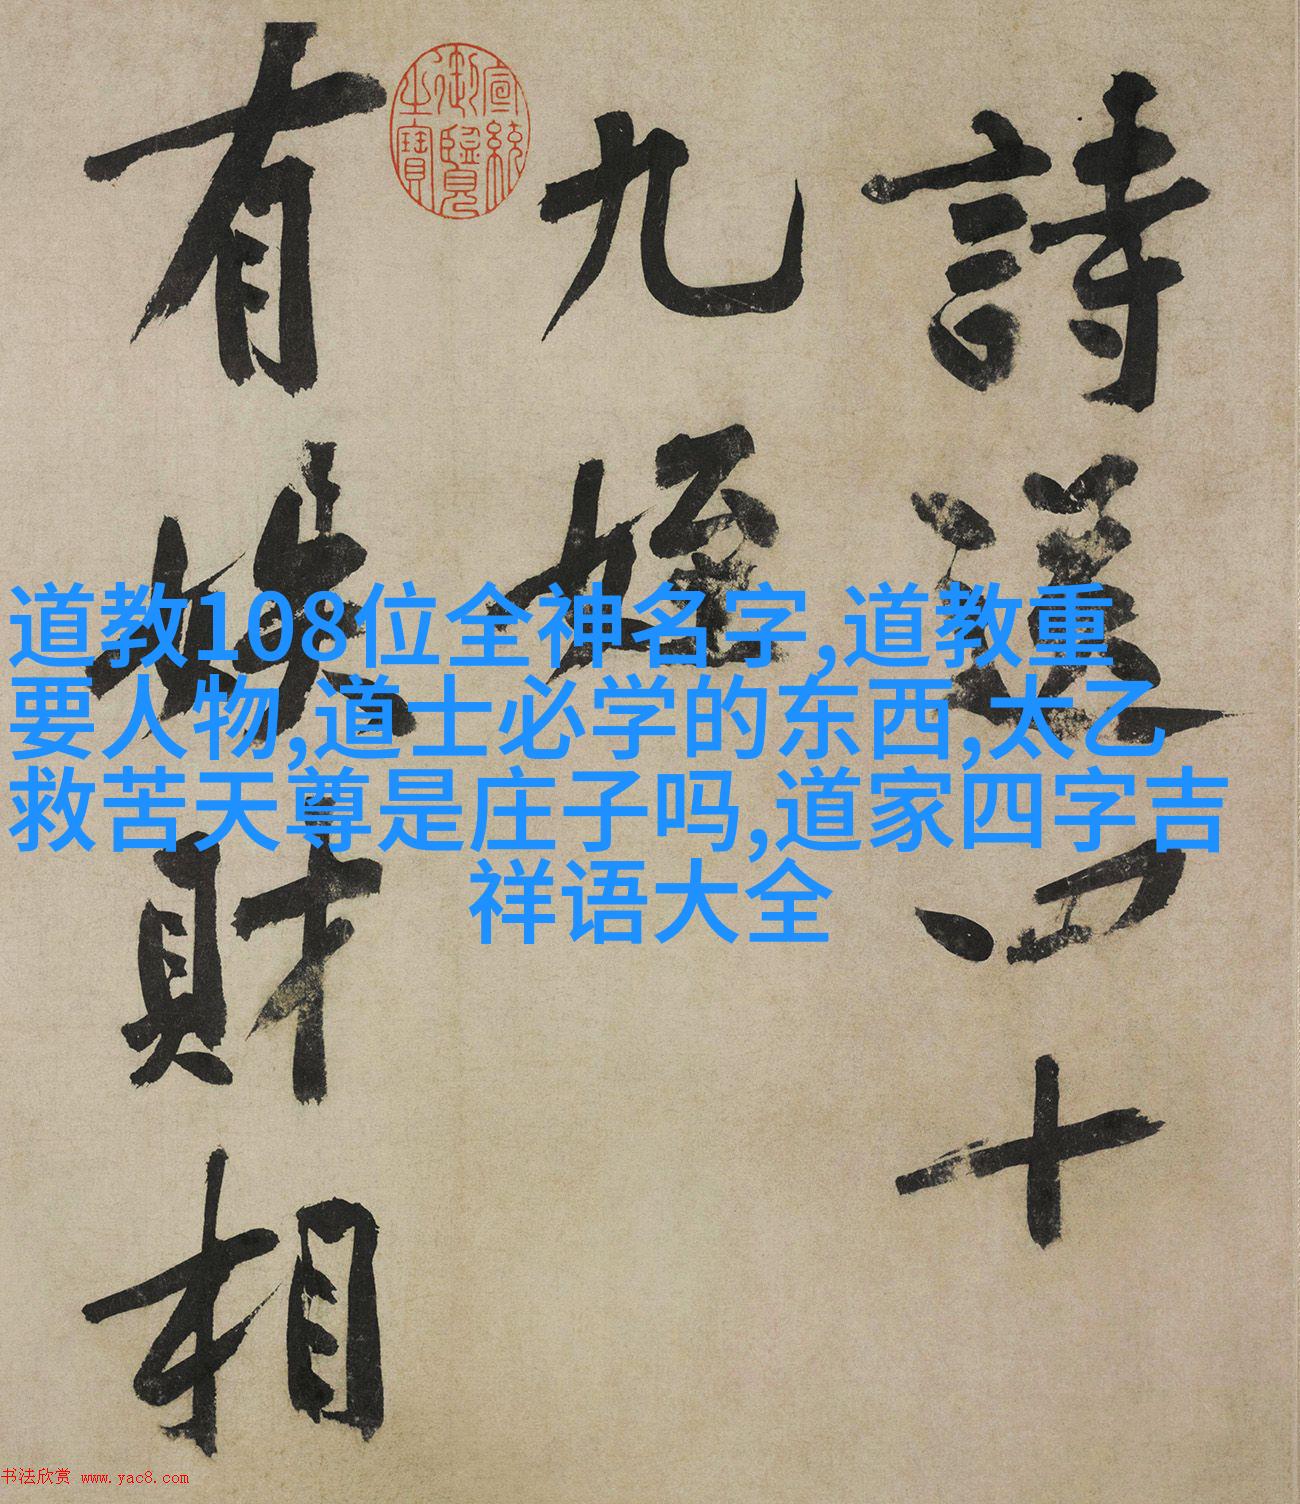 詩送四十
九姪
有財相
宣統御覽之寶
道教108位全神名字,道教重
要人物,道士必学的东西,太乙
救苦天尊是庄子吗,道家四字吉
祥语大全
书法欣赏 www.yac8.com